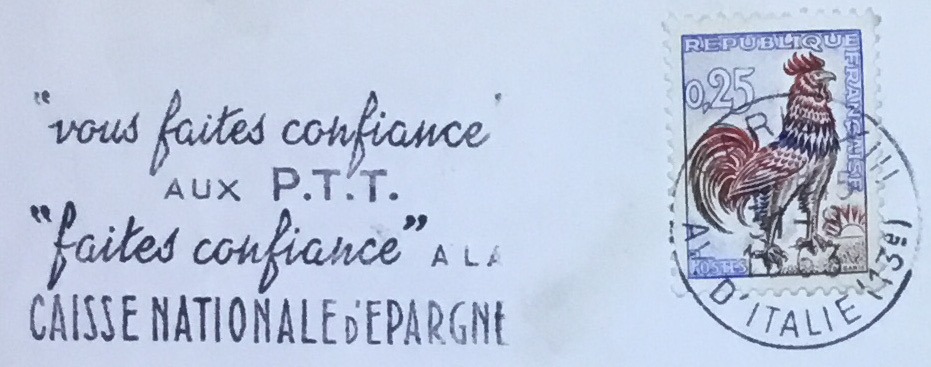 "vous faites confiance"
AUX P.T.T.
"faites confiance" A LA
CAISSE NATIONALE D'EPARGNE
REPUBLIQUE
FRANCAISE
0,25
POSTES
D'ITALIE (13e)